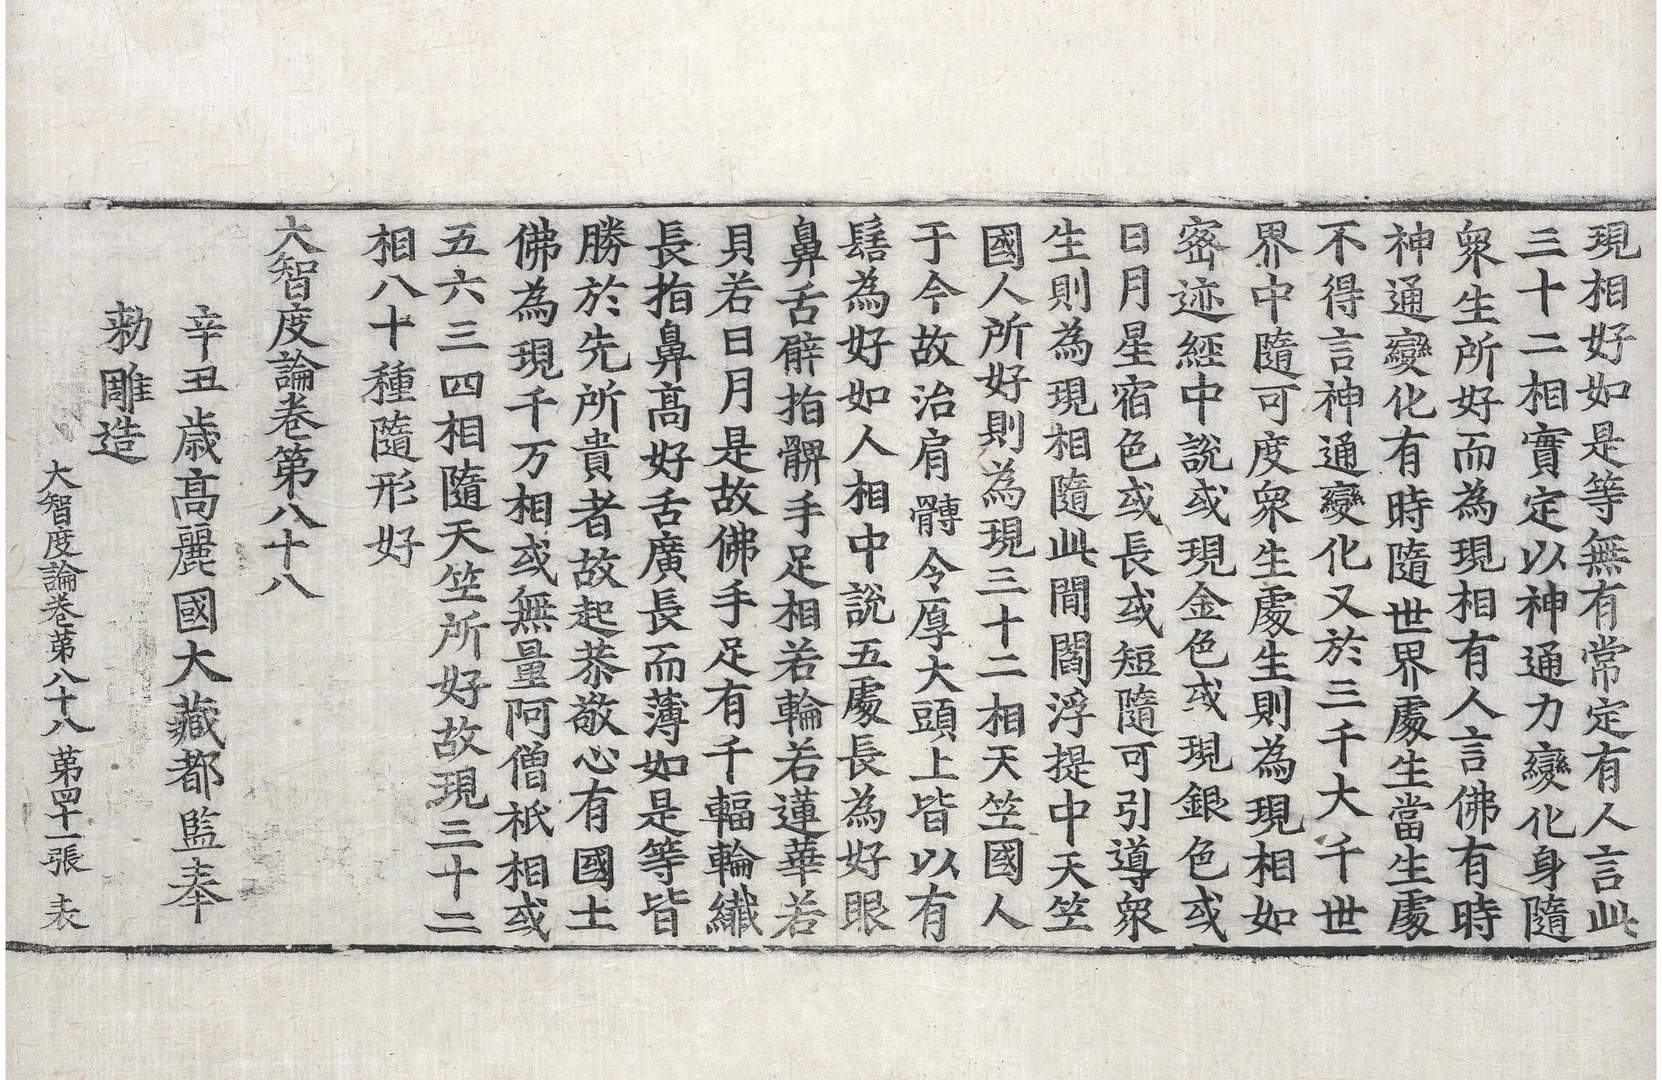 現相好如是等無有常定有人言此
三十二相實定以神通力變化身隨
衆生所好而為現相有人言佛有時
神通變化有時隨世界處生當生處
不得言神通變化又於三千大千世
界中隨可度衆生處生則為現相如
密迹經中說或現金色或現銀色或
日月星宿色或長或短隨可引導衆
生則為現相隨此閒閻浮提中天竺
國人所好則為現三十二相天竺國人
于今故治肩髆令厚大頭上皆以有
髻為好如人相中說五處長為好眼
鼻舌臂指髀手足相若輪若蓮華若
貝若日月是故佛手足有千輻輪纖
長指鼻高好舌廣長而薄如是等皆
勝於先所貴者故起恭敬心有國土
佛為現千万相或無量阿僧祇相或
五六三四相隨天竺所好故現三十二
相八十種隨形好
大智度論卷第八十八
辛丑歲高麗國大藏都監奉
勅雕造
大智度論卷第八十八 第四十一張 表